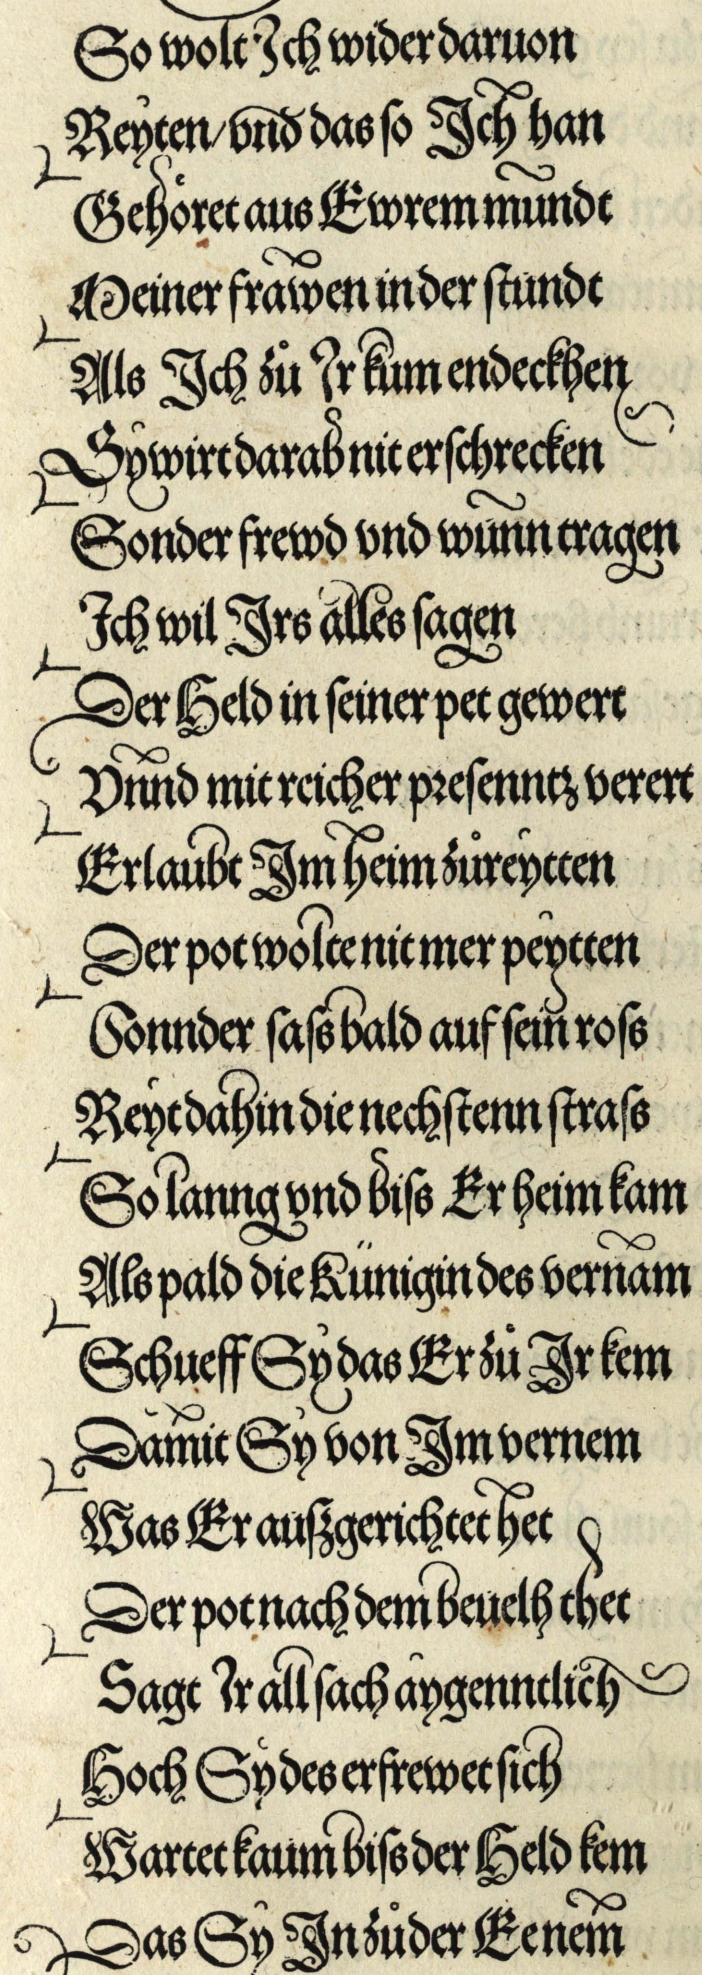 So wolt Ich wider daruon
Reyten/ vnd das so Ich han
Gehöret aus Ewrem mundt
Meiner frawen in der stundt
Als Ich zů Ir kum endeckhen
Sy wirt darab nit erschrecken
Sonder frewd vnd wunn tragen
Ich wil Irs alles sagen
Der Held in seiner pet gewert
Vnnd mit reicher presenntz verert
Erlaubt Im heim zůreytten
Der pot wolte nit mer peytten
Sonnder saſs bald auf sein roſs
Reyt dahin die nechstenn straſs
So lanng vnd biſs Er heim kam
Als pald die Künigin des vernam
Schueff Sy das Er zů Ir kem
Damit Sy von Im vernem
Was Er auſzgerichtet het
Der pot nach dem beuelh thet
Sagt Ir all sach aygenntlich
Hoch Sy des erfrewet sich
Wartet kaum biſs der Held kem
Das Sy In zů der Ee nem